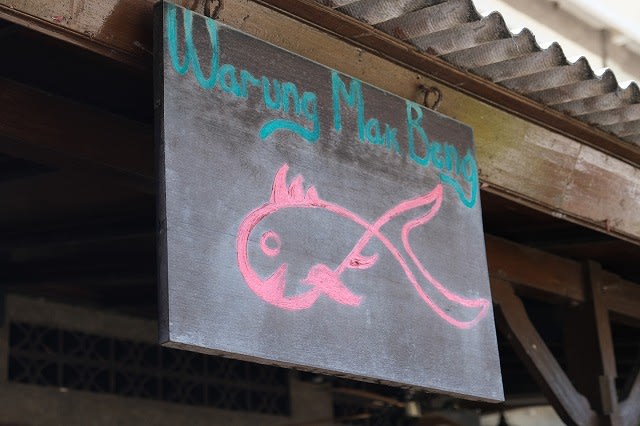 Warung Mak Beng